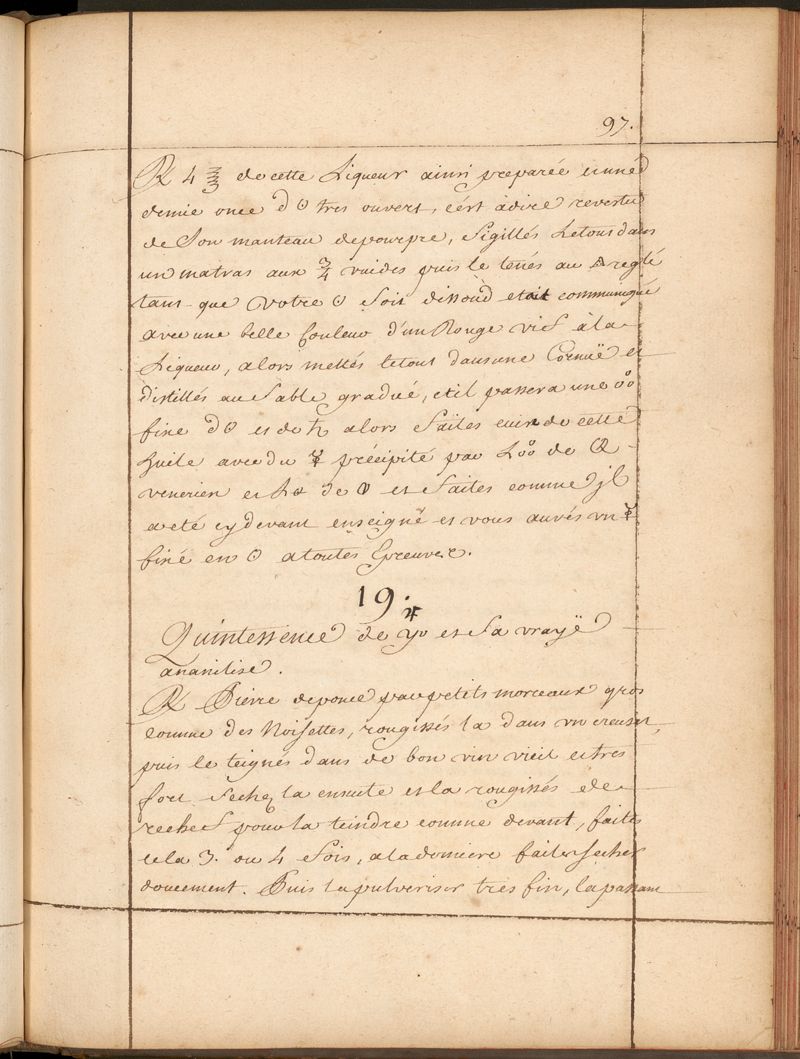 97.
℞ 4 ℥ de cette Liqueur ainsi preparée et une
demie once d'☉ tres ouvert, c'ést àdire revestu
de Son manteau depourpre, Sigillés Letout dans
un matras aux ¾ vuides puis le tenés au 🜂 reglé
tant que Votre ☉ Soit dissoud et ait communiqué
avec une belle Couleur d'un Rouge vif à la
Liqueur, alors mettés letout dans une Cornuë et
distillés au Sable gradué, et il passera une
fixe d☉ et de ♄ alors faites cuire de cette
huile avec du ☿ précipité par de
venerien et de et faites comme jl
a eté cy devant enseigné et vous aurés un ☿
fixé en ☉ atoutes Epreuves.
19.
Quintessence de et Sa vrayë
℞ Pierre deponce par petits morceaux gros
comme des Noisettes, rougissés la dans un creuset,
puis le teignés dans de bon vin vieil et tres
fort Sechez la ensuite et la rougissés de
rechef pour la teindre comme devant, faites
cela 3. ou 4 fois, a la derniere faites secher
doucement. Puis la pulveriser tres fin, la passant